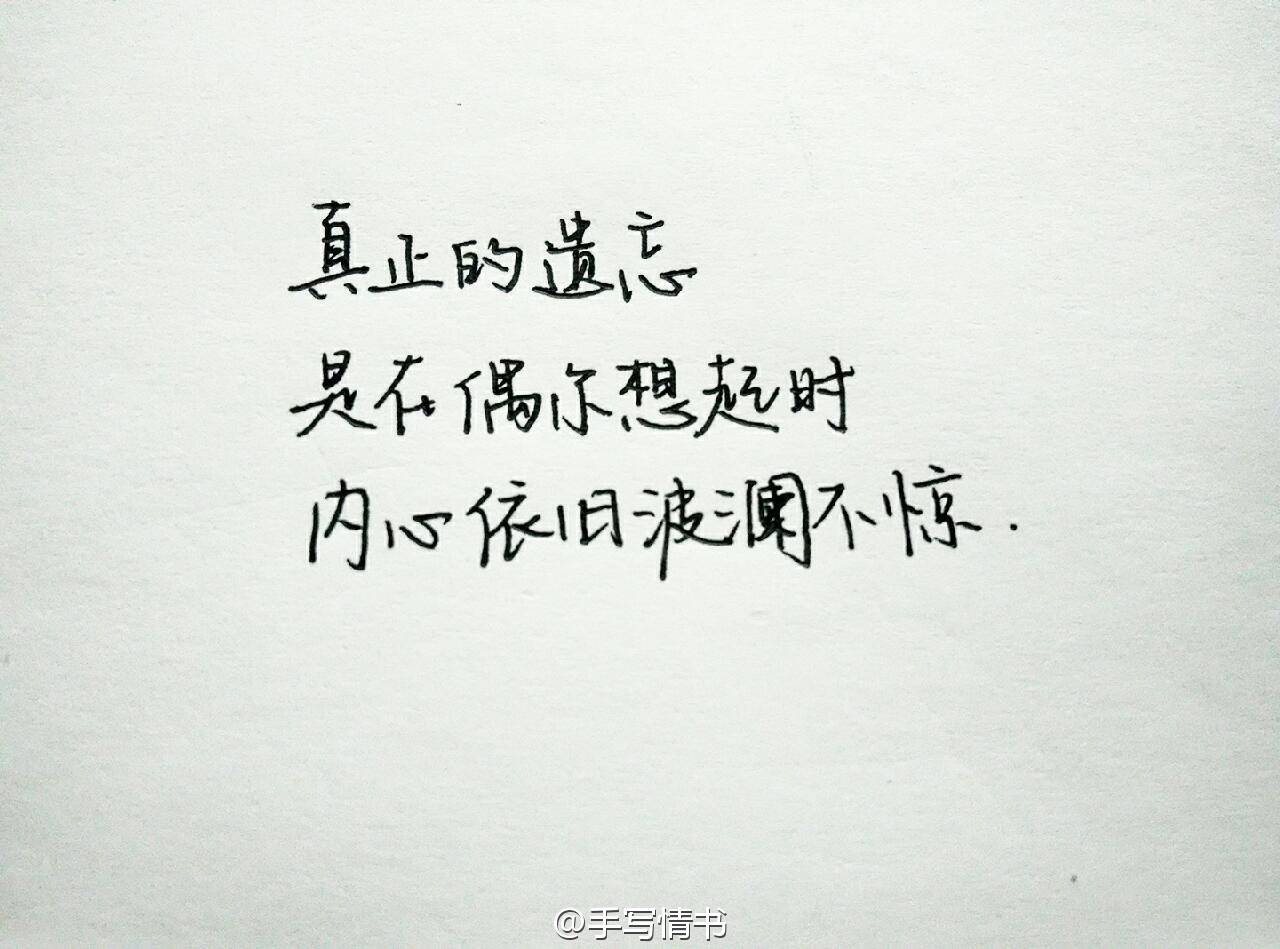 真正的遗忘
是在偶尔想起时
内心依旧波澜不惊.
@手写情书